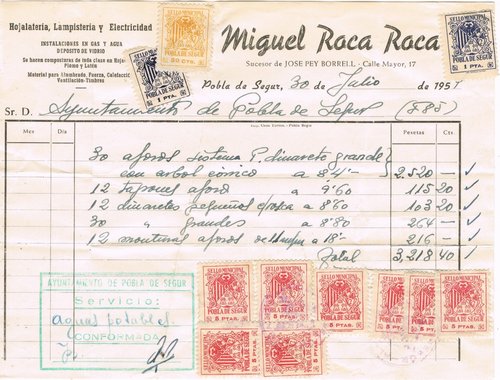 Hojalatería, Lampistería y Electricidad
INSTALACIONES EN GAS Y AGUA
DEPOSITO DE VIDRIO
Se hacen composturas de toda clase en Hoja-
Plomo y Latón
Material para Alumbrado, Fuerza, Calefacción
Ventilación-Timbres
SELLO MUNICIPAL
POBLA DE SEGUR
50 CTS.
SELLO MUNICIPAL
POBLA DE SEGUR
1 PTA.
Miguel Roca Roca
Sucesor de JOSE PEY BORRELL - Calle Mayor, 17
POBLA DE SEGUR
1 PTA.
Pobla de Segur, 30 de Julio de 195
Sr. D. Ayuntamiento de Pobla de Segur (F85)
Mes Día Pesetas Cts.
30 aforos sistema P. dimareto grande
con arbol cónico a 84'- 2.520 -
12 tapones aforo a 9'60 115 20
12 dimaretes pequeños a 8'60 103 20
30 " grandes a 8'80 264 -
12 monturas aforos de a 18'- 216 -
Total 3,218 40
AYUNTAMIENTO DE POBLA DE SEGUR
Servicio:
aguas potables
CONFORMADA
SELLO MUNICIPAL
POBLA DE SEGUR
5 PTAS.
SELLO MUNICIPAL
POBLA DE SEGUR
5 PTAS.
SELLO MUNICIPAL
POBLA DE SEGUR
5 PTAS.
SELLO MUNICIPAL
POBLA DE SEGUR
5 PTAS.
SELLO MUNICIPAL
POBLA DE SEGUR
5 PTAS.
SELLO MUNICIPAL
POBLA DE SEGUR
5 PTAS.
SELLO MUNICIPAL
POBLA DE SEGUR
5 PTAS.